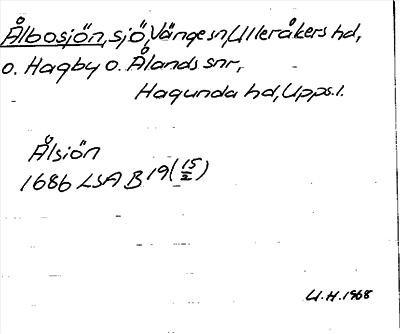 Ålbosjön, sjö, Vänge sn, Ulleråkers hd,
o. Hagby o. Ålands snr,
Hagunda hd, Upps.l.
Ålsjön
1686 LSA B 19 (15/2)
U.H. 1968